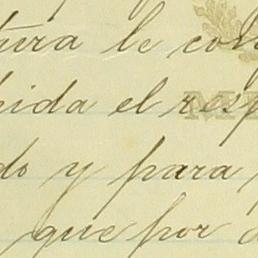 tura le cor
bida el resp
do y para
que por